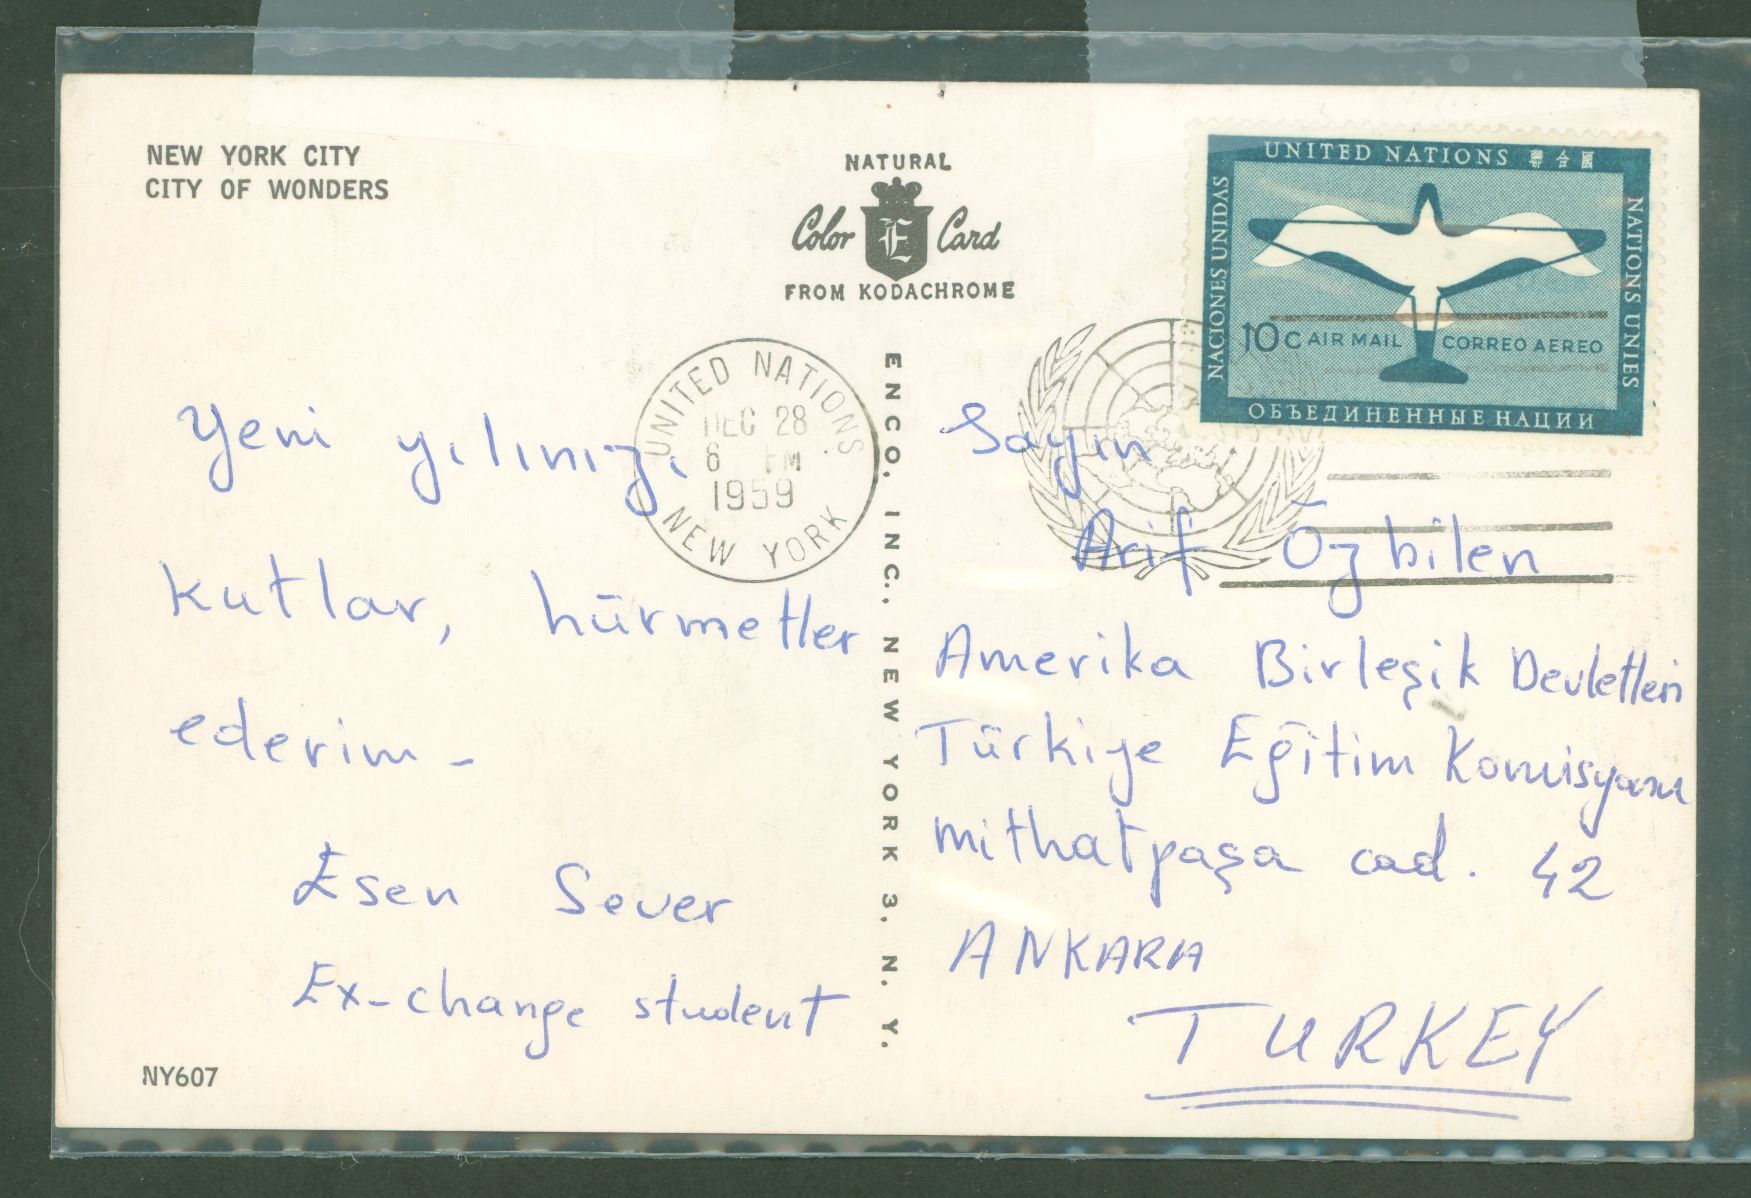 NEW YORK CITY
CITY OF WONDERS
NATURAL
Color E Card
FROM KODACHROME
UNITED NATIONS 聯合國
NACIONES UNIDAS
NATIONS UNIES
10c AIR MAIL CORREO AEREO
ОБЪЕДИНЕННЫЕ НАЦИИ
UNITED NATIONS
DEC 28
6 PM
1959
NEW YORK
ENCO, INC., NEW YORK 3, N. Y.
Yeni yılınızı
kutlar, hürmetler
ederim -
Esen Sever
Ex-change student
NY607
Sayın
Arif Özbilen
Amerika Birleşik Devletleri
Türkiye Eğitim Komisyonu
mithatpaşa cad. 42
ANKARA
TURKEY